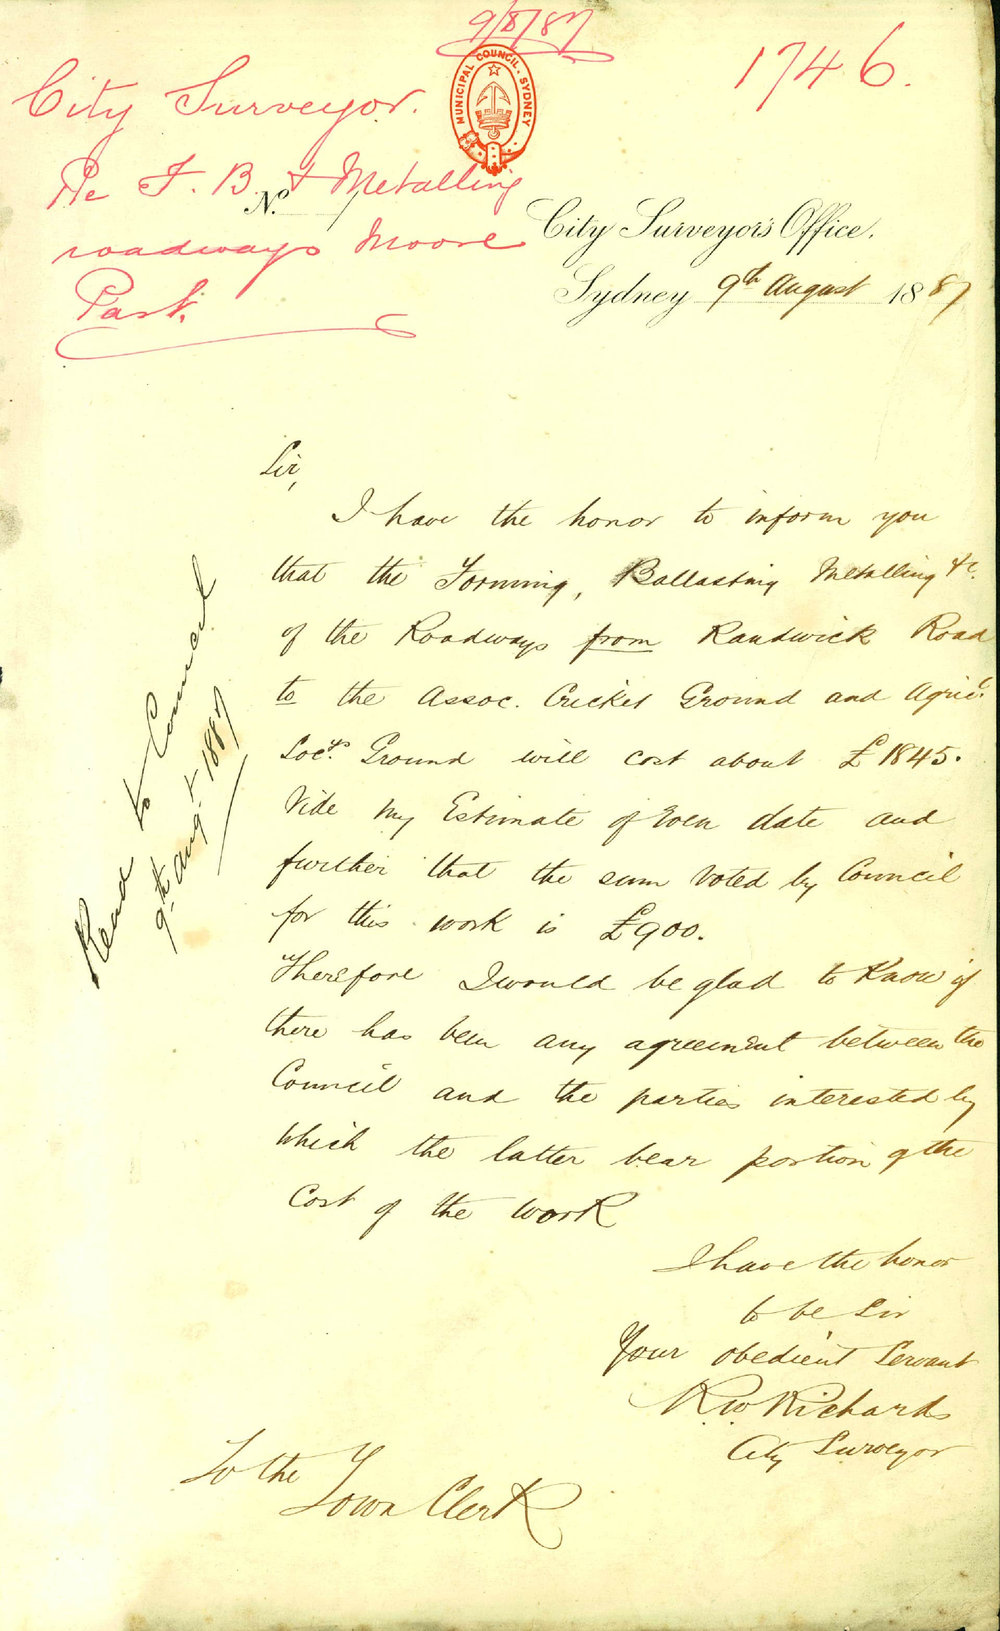 9/8/87
1746.
City Surveyor.
Re F. B. & Metalling
roadways Moore
Park.
MUNICIPAL COUNCIL. SYDNEY
No.
City Surveyor's Office.
Sydney 9th August 1887
Sir,
I have the honor to inform you
that the Forming, Ballasting Metalling &c.
of the Roadways from Randwick Road
to the Assoc. Cricket Ground and Agricl.
Socys. Ground will cost about £1845.
Vide my Estimate of even date and
further that the sum voted by Council
for this work is £900.
Therefore I would be glad to know if
there has been any agreement between the
Council and the parties interested by
which the latter bear portion of the
Cost of the work
I have the honor
to be Sir
Your obedient Servant
R W Richards
City Surveyor
To the
Town Clerk
Read to Council
9th Augt 1887